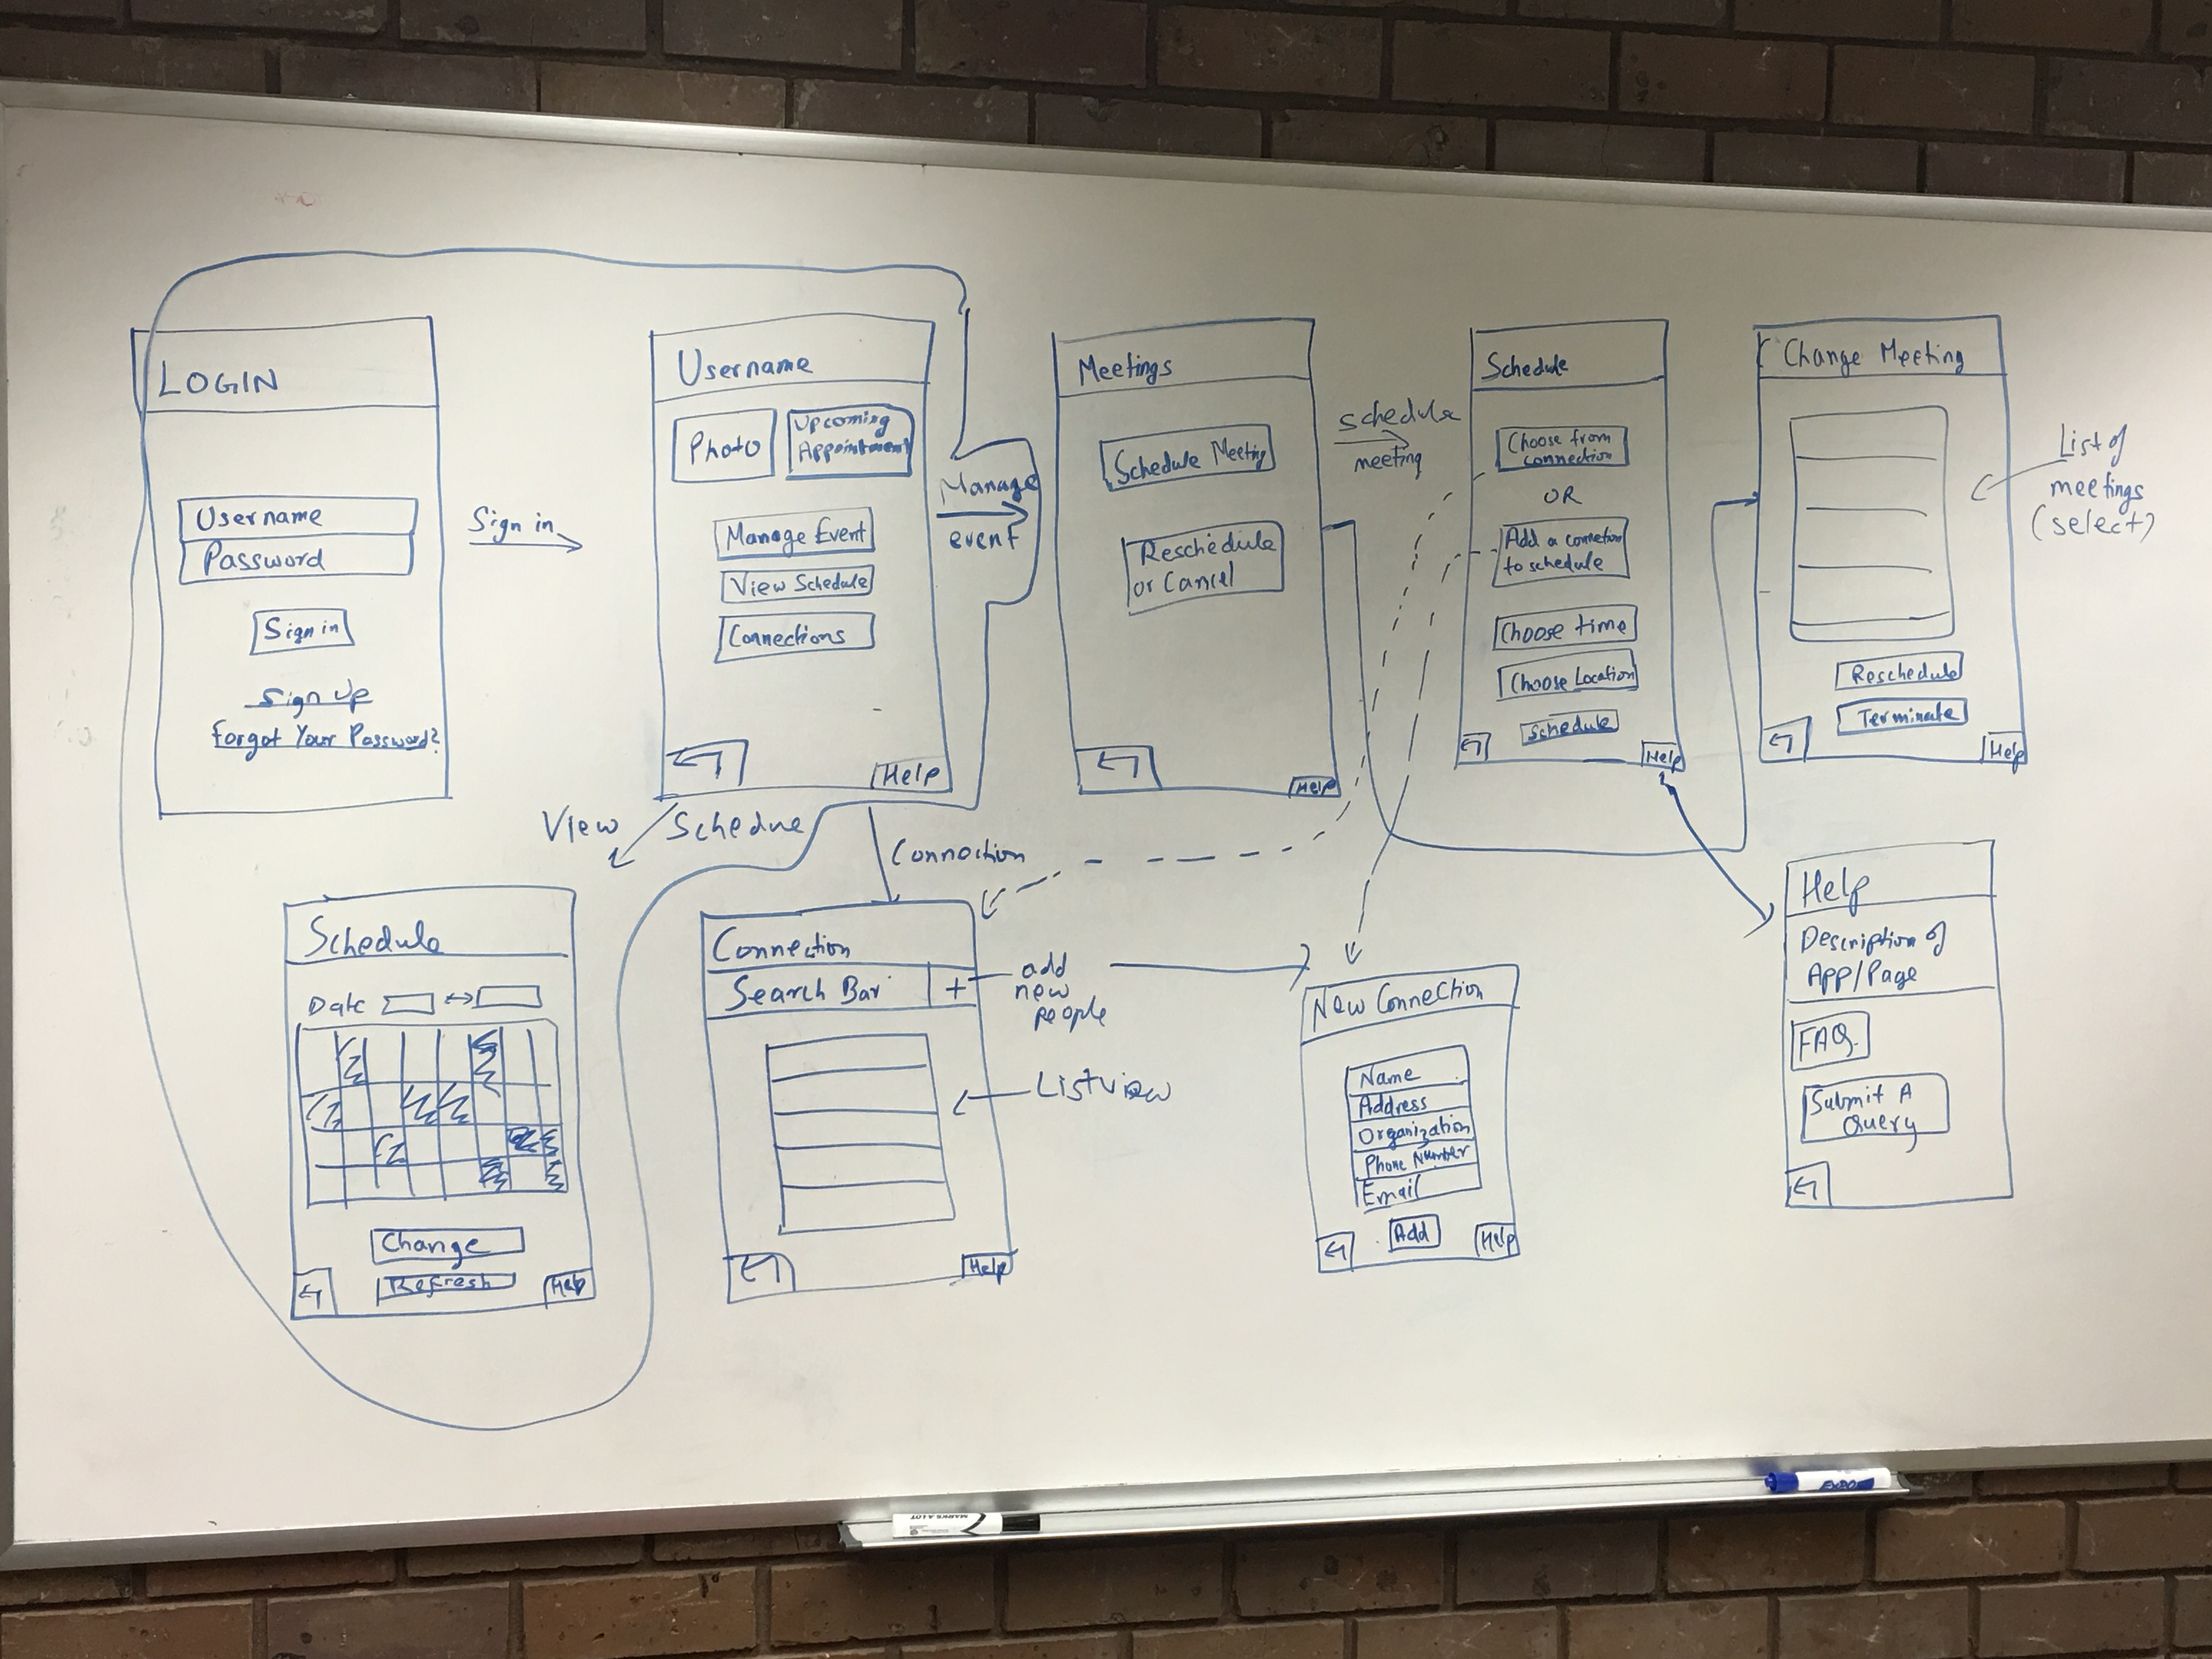 LOGIN
Username
Password
Sign in
Sign up
Forgot Your Password?
Sign in
Username
Photo
Upcoming
Appointment
Manage Event
View Schedule
Connections
Help
Manage
event
Meetings
Schedule Meeting
Reschedule
or Cancel
Help
schedule
meeting
Schedule
Choose from
connection
OR
Add a connection
to schedule
Choose time
Choose Location
Schedule
Help
Change Meeting
Reschedule
Terminate
Help
List of
meetings
(select)
View Schedue
Connection
Schedule
Date
Change
Refresh
Help
Connection
Search Bar +
Help
add
new
people
Listview
New Connection
Name
Address
Organization
Phone Number
Email
Add
Help
Help
Description of
App/Page
FAQ.
Submit A
Query
MARKS A LOT
EXPO